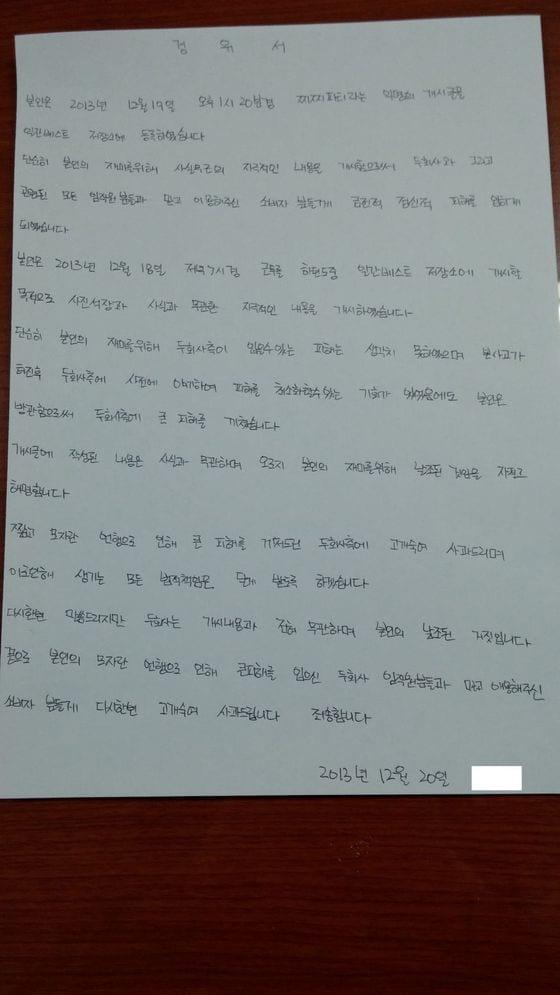 경 위 서
본인은 2013년 12월 19일 오후 1시 20분경 찌찌파티라는 익명의 게시글을
일간베스트 저장소에 등록하였습니다
단순히 본인의 재미를위해 사실무근의 자극적인 내용을 게시함으로써 두회사와 그리고
관련된 모든 임직원 분들과 믿고 이용해주신 소비자 분들게 금전적 정신적 피해를 입히게
되었습니다
본인은 2013년 12월 18일 저녁 7시경 근무를 하던도중 일간베스트 저장소에 게시할
목적으로 사진석장과 사실과 무관한 자극적인 내용을 게시하였습니다
단순히 본인의 재미를위해 두회사측이 입을수있는 피해는 생각치 못하였으며 본사고가
터진후 두회사측에 사전에 얘기하여 피해를 최소화할수있는 기회가 있었음에도 본인은
방관함으로써 두회사측에 큰 피해를 끼쳤습니다
게시글에 작성된 내용은 사실과 무관하며 오로지 본인의 재미를위해 날조된 것임을 자필로
해명합니다
짧고 모자란 언행으로 인해 큰 피해를 가져드린 두회사측에 고개숙여 사과드리며
이로인해 생기는 모든 법적책임은 달게 받도록 하겠습니다
다시한번 말씀드리지만 두회사는 게시내용과 전혀 무관하며 본인의 날조된 거짓입니다
끝으로 본인의 모자란 언행으로 인해 큰피해를 입으신 두회사 임직원분들과 믿고 애용해주신
소비자 분들게 다시한번 고개숙여 사과드립니다 죄송합니다
2013년 12월 20일